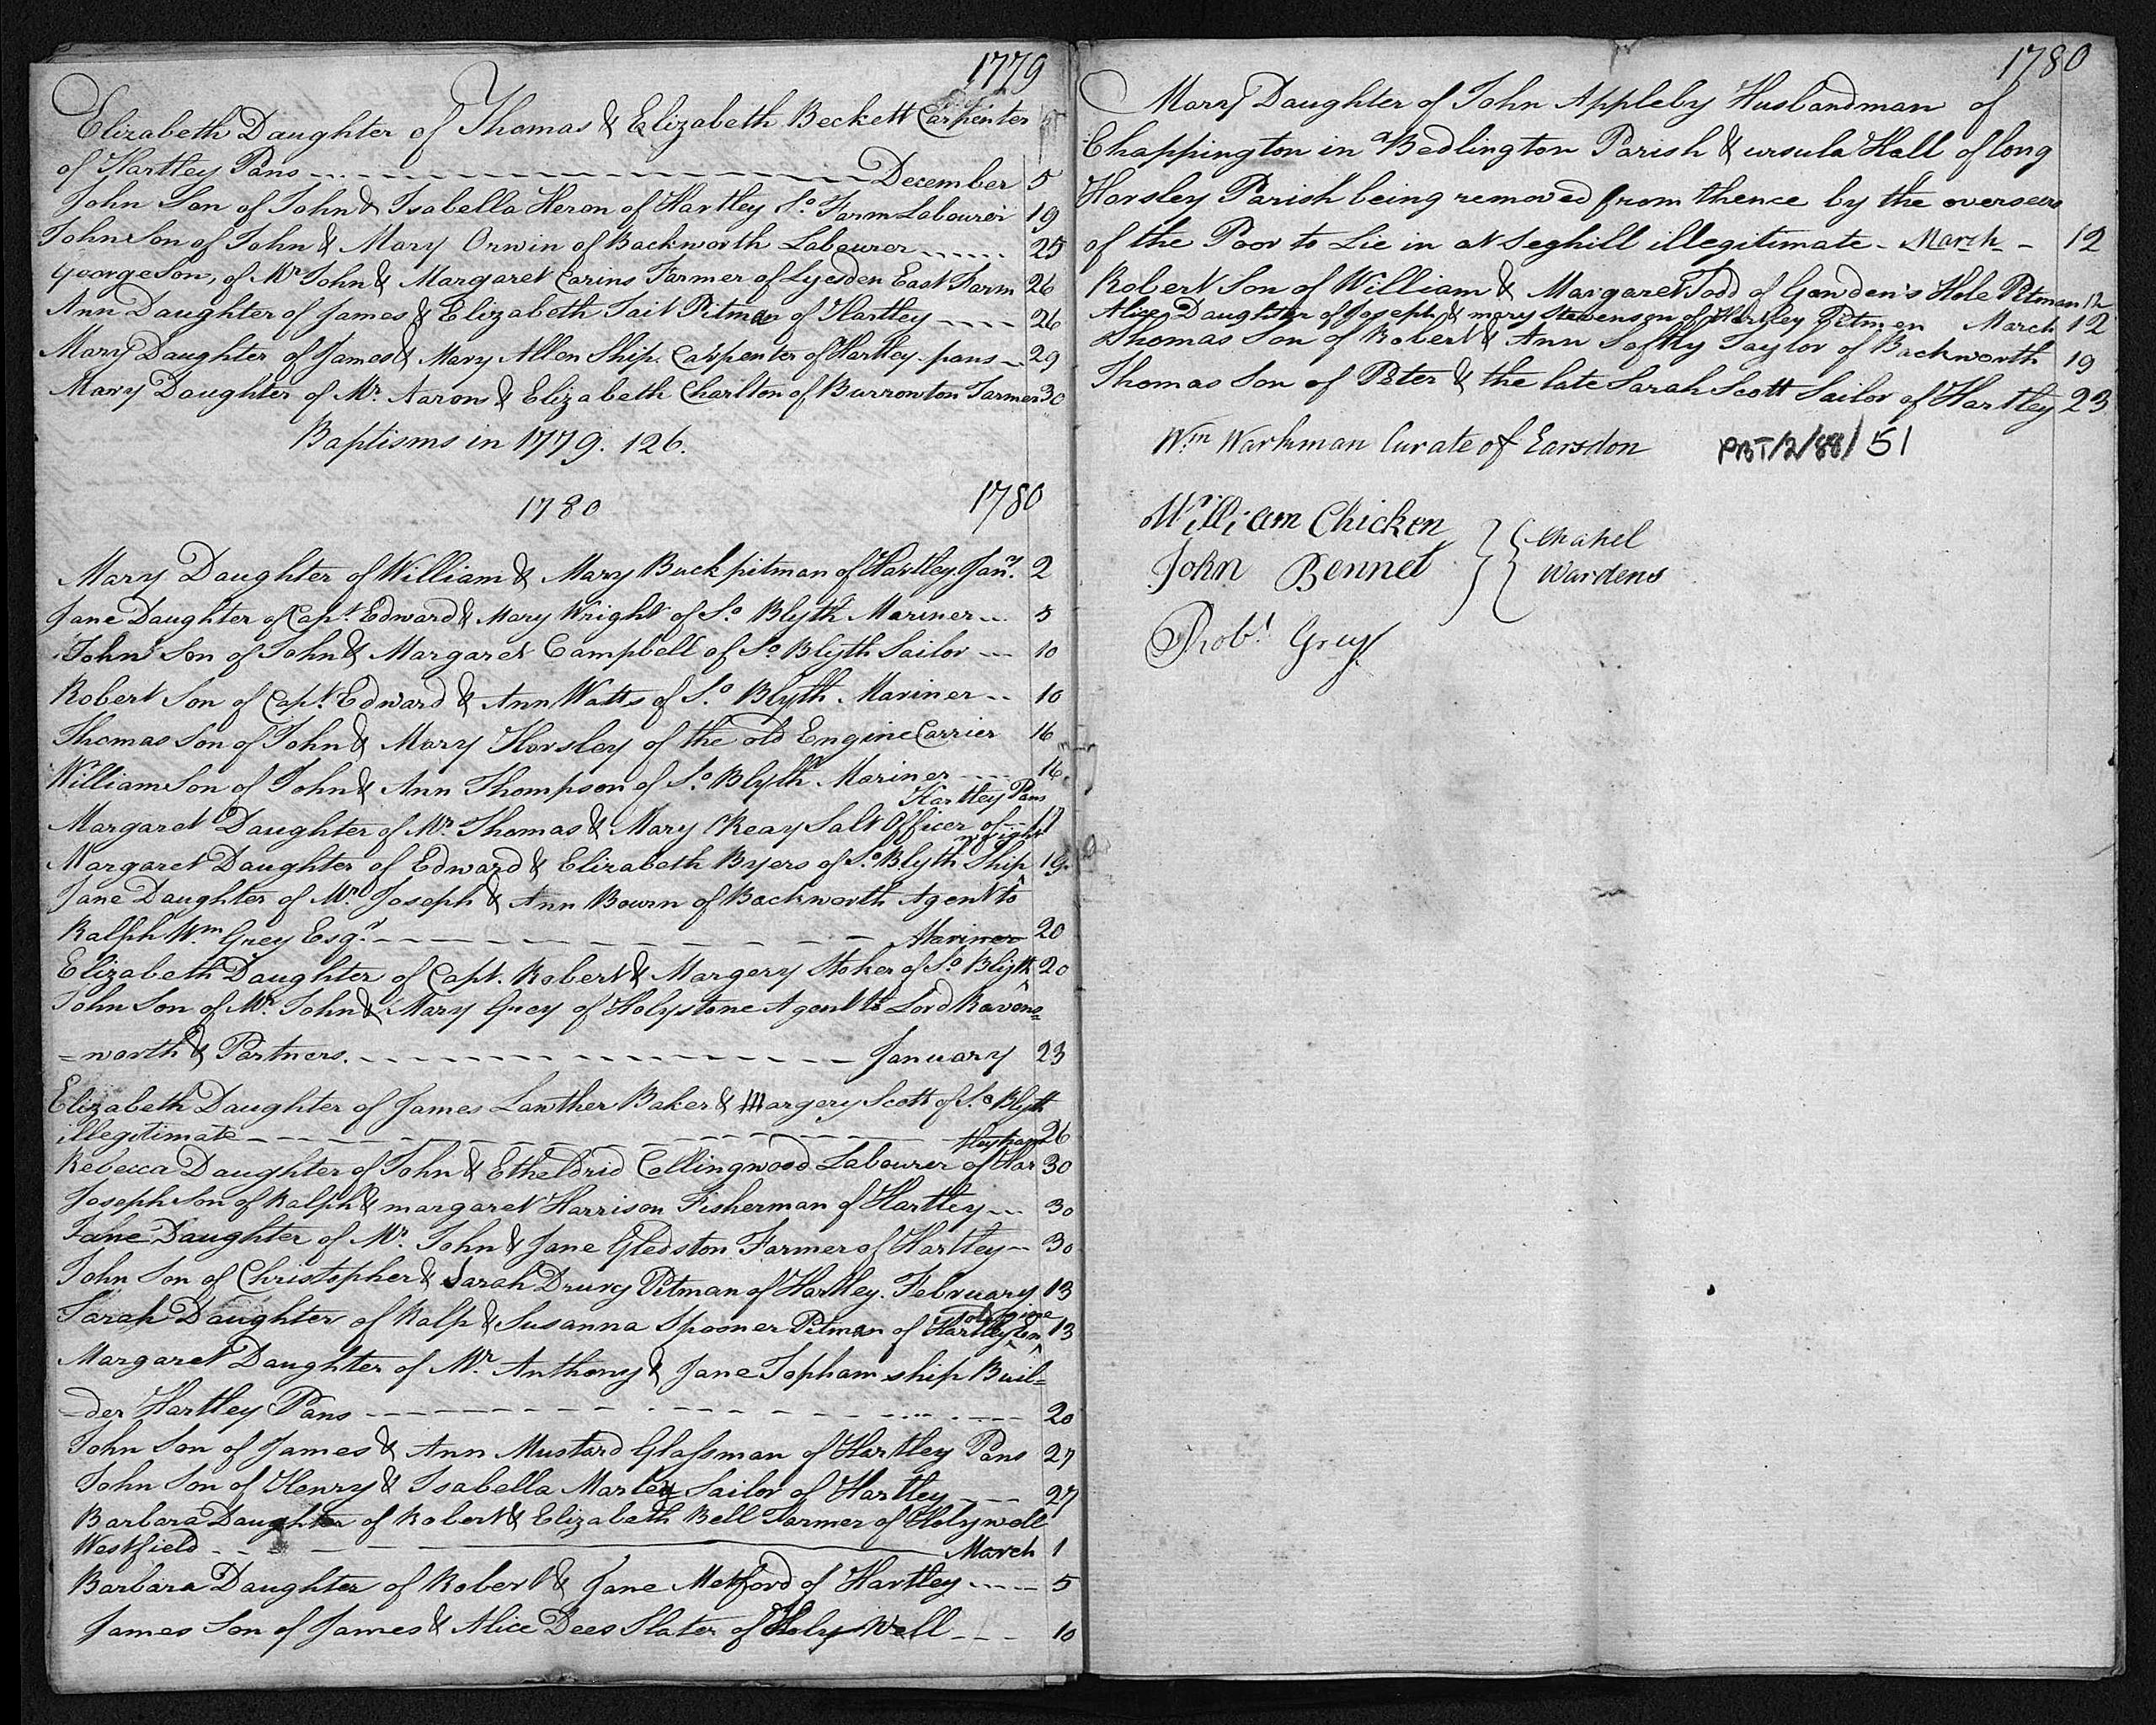 1779
Elizabeth Daughter of Thomas & Elizabeth Beckett Carpenter
of Hartley Pans December 5
John Son of John & Isabella Heron of Hartley So. Farm Labourer 19
John Son of John & Mary Orwin of Backworth Labourer 25
George Son, of Mr. John & Margaret Carins Farmer of Lyesden East Farm 26
Ann Daughter of James & Elizabeth Tait Pitman of Hartley 26
Mary Daughter of James & Mary Allen Ship Carpenter of Hartley pans 29
Mary Daughter of Mr. Aaron & Elizabeth Charlton of Burronton Farmer 30
Baptisms in 1779. 126.
1780 1780
Mary Daughter of William & Mary Buck pitman of Hartley Jany. 2
Jane Daughter of Capt. Edward & Mary Wright of So. Blyth Mariner 5
John Son of John & Margaret Campbell of So. Blyth Sailor 10
Robert Son of Capt. Edward & Ann Watts of So. Blyth. Mariner 10
Thomas Son of John & Mary Horsley of the old Engine Carrier 16
William Son of John & Ann Thompson of So. Blyth Mariner 16
Hartley Pans
Margaret Daughter of Mr. Thomas & Mary Reay Salt Officer of 17
wright
Margaret Daughter of Edward & Elizabeth Byers of So. Blyth Ship 19
Jane Daughter of Mr. Joseph & Ann Bourn of Backworth Agent to
Ralph Wm. Grey Esqr. Mariner 20
Elizabeth Daughter of Capt. Robert & Margery Stoker of So. Blyth 20
John Son of Mr. John & Mary Grey of Holystone Agent to Lord Ravens=
=worth & Partners. January 23
Elizabeth Daughter of James Lawther Baker & Margery Scott of So. Blyth
illegitimate 26
tley pans
Rebecca Daughter of John & Etheldrid Collingwood Labourer of Har 30
Joseph Son of Ralph & margaret Harrison Fisherman of Hartley 30
Jane Daughter of Mr. John & Jane Gledston Farmer of Hartley 30
John Son of Christopher & Sarah Drury Pitman of Hartley. February 13
old gine
Sarah Daughter of Ralp & Susanna Spooner Pitman of Hartley En 13
Margaret Daughter of Mr. Anthony & Jane Topham ship Buil=
=der Hartley Pans 20
John Son of James & Ann Mustard Glassman of Hartley Pans 27
John Son of Henry & Isabella Marley Sailor of Hartley 27
Barbara Daughter of Robert & Elizabeth Bell Farmer of Holywell
Westfield March 1
Barbara Daughter of Robert & Jane Metford of Hartley 5
James Son of James & Alice Dees Slater of Holy Well 10
1780
Mary Daughter of John Appleby Husbandman of
Chappington in Bedlington Parish & ursula Hall of long
Horsley Parish being removed from thence by the overseers
of the Poor to Lie in at Seghill illegitimate - March - 12
Robert Son of William & Margaret Todd of Gowden's Hole Pitman 12
Alice Daughter of Joseph & mary Stevenson of Hartley Pitman March 12
Thomas Son of Robert & Ann Softly Taylor of Backworth 19
Thomas Son of Peter & the late Sarah Scott Sailor of Hartley 23
Wm. Warkman Curate of Earsdon PBT/2/88/51
William Chicken } { Chapel
John Bennet } { Wardens
Robt. Grey